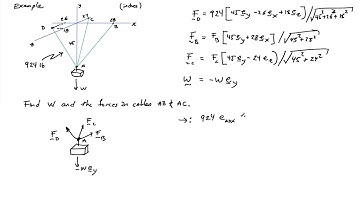 Example
(inches)
y
26
27
28
C
B
x
D
18
45
z
A
924 lb
W
F_D = 924 [45e_y - 26e_x + 18e_z] / √(45² + 26² + 18²)
F_B = F_B [45e_y + 28e_x] / √(45² + 28²)
F_C = F_C [45e_y - 24e_z] / √(45² + 24²)
W = -We_y
Find W and the forces in cables AB & AC.
F_C
F_D
F_B
A
-We_y
→:  924 e_ADx